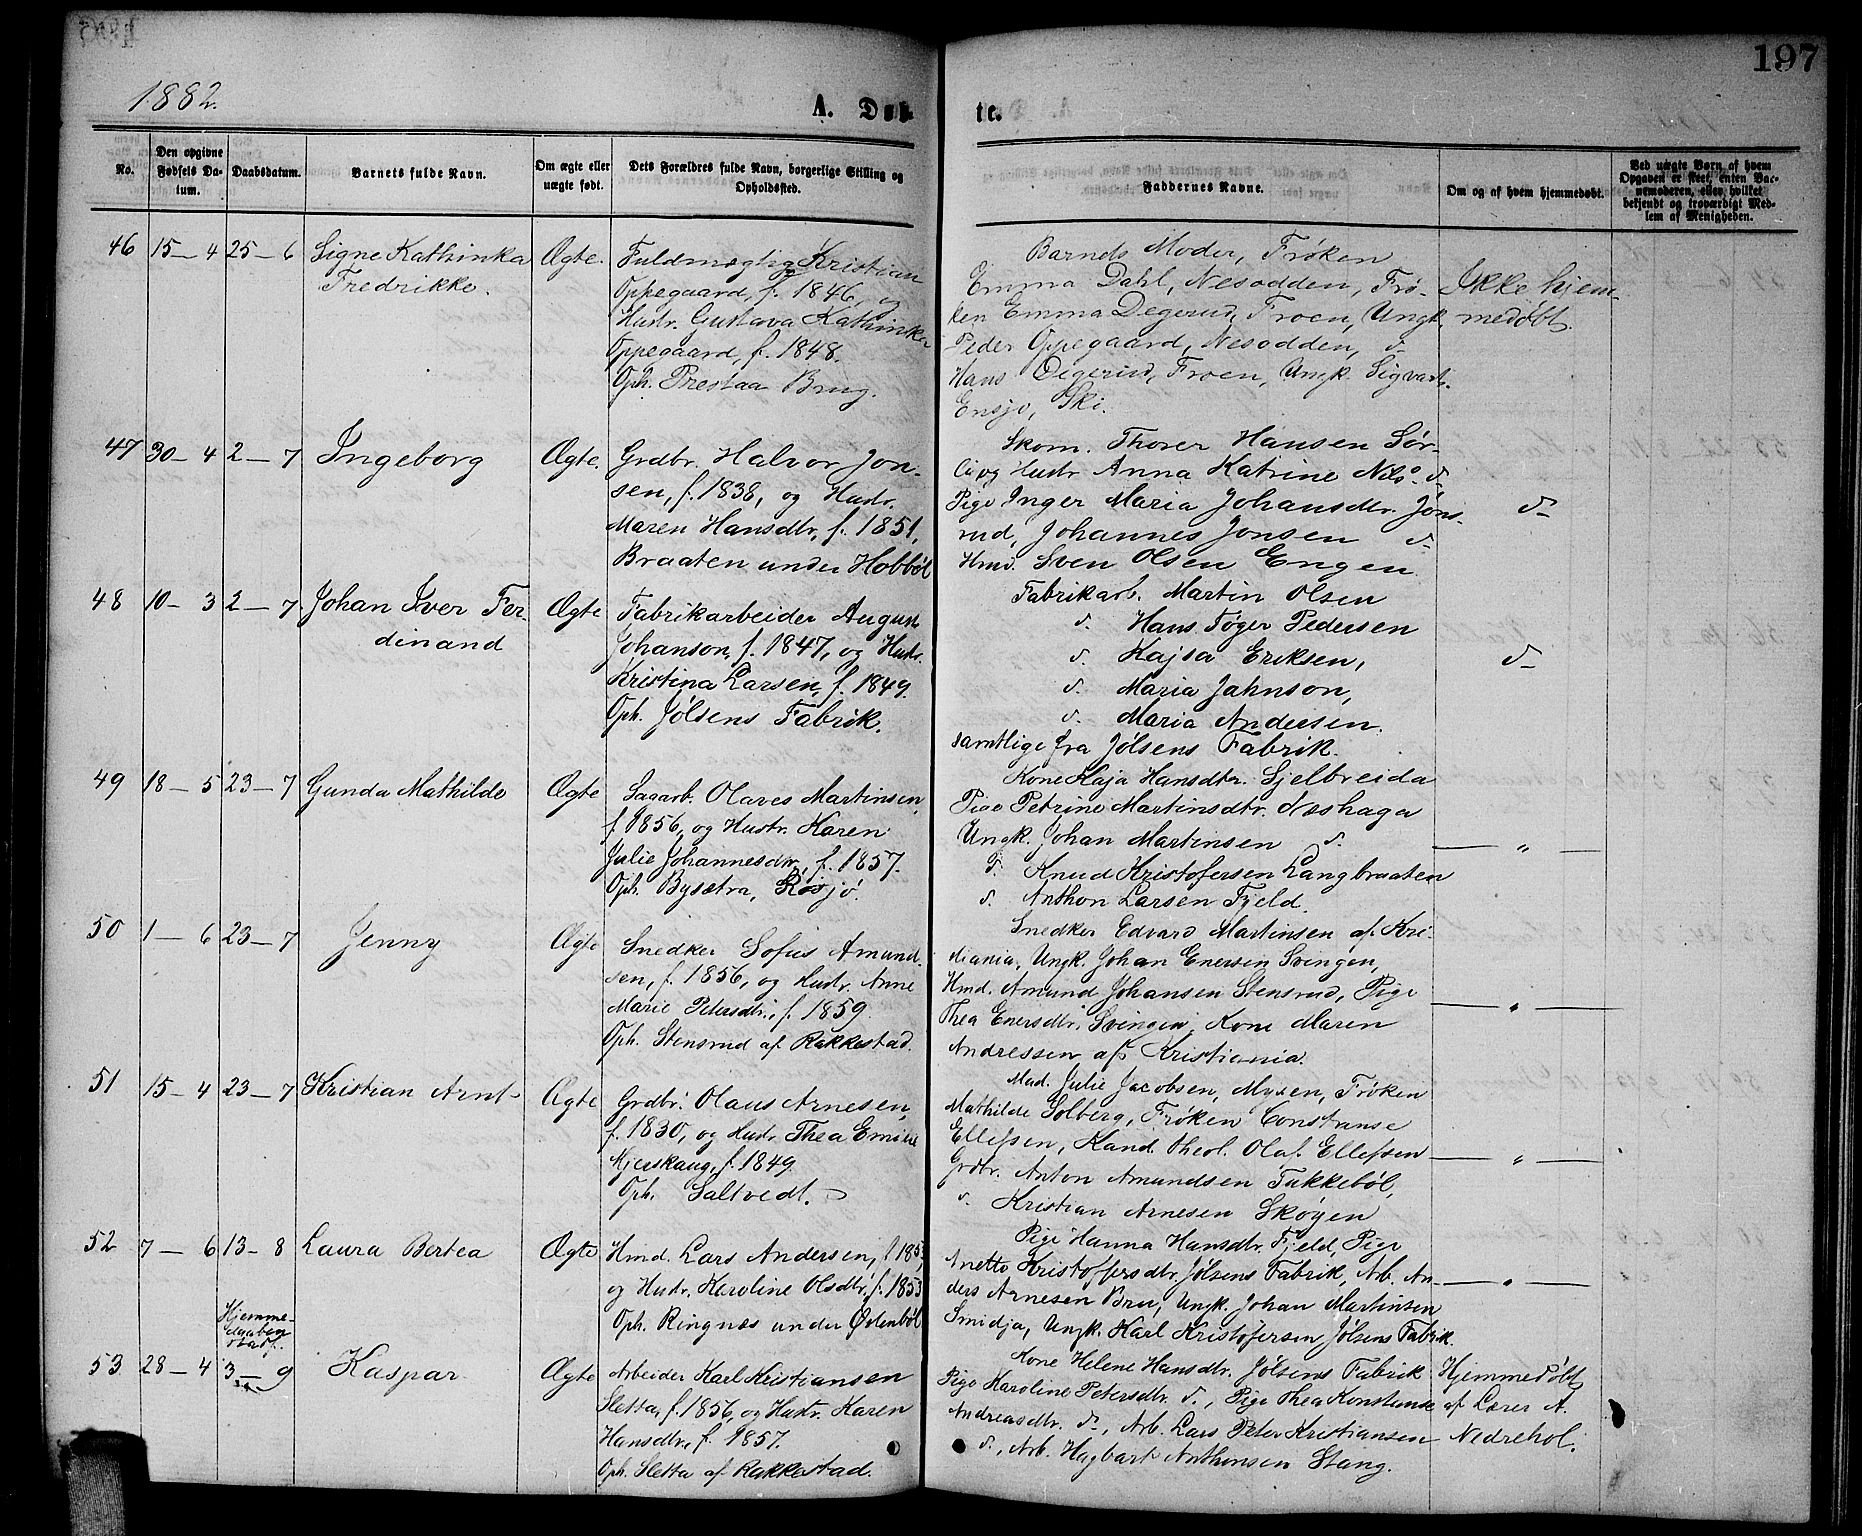 197
1882.
A. Døbte.
No.
Den opgivne Fødsels Datum.
Daabsdatum.
Barnets fulde Navn.
Om ægte eller uægte født.
Dets Forældres fulde Navn, borgerlige Stilling og Opholdsted.
Faddernes Navne.
Om og af hvem hjemmedøbt.
Ved uægte Børn, af hvem Opgaven er skeet, enten Barnemoderen, eller hvilket bekjendt og troværdigt Medlem af Menigheden.
46 15-4 25-6 Signe Kathinka
Fredrikke.
Ægte.
Fuldmægtig Kristian
Oppegaard, f. 1846, og
Hustr. Gustava Kathinka
Oppegaard, f. 1848.
Oph. Prestaa Brug.
Barnets Moder, Frøken
Emma Dahl, Nesodden, Frø-
ken Emma Degerud, Froen, Ungk.
Peder Oppegaard, Nesodden, d-
Hans Degerud, Froen, Ungk. Sigvart
Ensjø, Ski.
Ikke hjem-
medøbt.
47 30-4 2-7 Ingeborg
Ægte.
Grdbr. Halvor Jon-
sen, f. 1838, og Hustr.
Maren Hansdtr, f. 1851,
Braaten under Hobbøl
Skom. Thorer Hansen Sør-
li og Hustr Anna Katrine Nils- d-
Pige Inger Maria Johansdtr. Jøns-
rud, Johannes Jonsen d-
Hmd. Sven Olsen Engen
d-
48 10-3 2-7 Johan Iver Fer-
dinand
Ægte
Fabrikarbeider August
Johanson, f. 1847, og Hustr.
Kristina Larsen, f. 1849.
Oph. Jølsens Fabrik.
Fabrikarb. Martin Olsen
d. Hans Tøger Pedersen
d. Kajsa Eriksen,
d. Maria Jahnson,
d. Maria Andersen.
samtlige fra Jølsens Fabrik.
d-
49 18-5 23-7 Gunda Mathilde
Ægte
Sagarb. Olaves Martinsen
f. 1856, og Hustr. Karen
Julie Johannesdtr, f. 1857.
Oph. Bysætra, Røsjø.
Kone Kaja Hansdtr. Sjelbreida
Pige Petrine Martinsdtr. Næshaga
Ungk. Johan Martinsen d.
d. Knud Kristofersen Langbraaten
d. Anthon Larsen Fjeld.
— „ —
50 1-6 23-7 Jenny
Ægte
Snedker Sofus Amund-
sen, f. 1856, og Hustr. Anne
Marie Petersdtr., f. 1859.
Oph. Stensrud af Rakkestad.
Snedker Edvard Martinsen af Kri-
stiania, Ungk. Johan Enersen Svingen,
Hmd. Amund Johansen Stensrud, Pige
Thea Enersdtr. Svingen, Kone Maren
Andressen af Kristiania.
— „ —
51 15-4 23-7 Kristian Arnt
Ægte
Grdbr. Olaus Arnesen,
f. 1830, og Hustr. Thea Emilie
Kjerskaug, f. 1849.
Oph. Saltvedt.
Mad. Julie Jacobsen, Mysen, Frøken
Mathilde Solberg, Frøken Constanse
Ellefsen, Kand. Theol. Olaf Ellefsen
Grdbr. Anton Amundsen Tukkebøl,
d. Kristian Arnesen Skøyen
— „ —
52 7-6 13-8 Laura Bertea
Ægte
Hmd. Lars Andersen, f. 185
og Hustr. Karoline Olsdtr, f. 1853
Oph. Ringnæs under Østenbøl
Pige Hanna Hansdtr. Fjeld, Pige
Anette Kristoffersdtr Jølsens Fabrik, Arb. An-
ders Arnesen Bru, Ungk. Johan Martinsen
Smidja, Ungk. Karl Kristofersen Jølsens Fabrik.
— „ —
Hjemme-
daaben
stadf.
53 28-4 3-9 Kaspar
Ægte
Arbeider Karl Kristiansen
Sletta, f. 1856, og Hustr. Karen
Hansdtr, f. 1857.
Oph. Sletta af Rakkestad.
Kone Helene Hansdtr. Jølsens Fabrik
Pige Karoline Petersdtr. d., Pige Thea Konstanse
Andreasdtr. d., Arb. Lars Peter Kristiansen
d., Arb. Hagbart Anthonsen Stang.
Hjemmedøbt
af Lærer A.
Nedrehol.